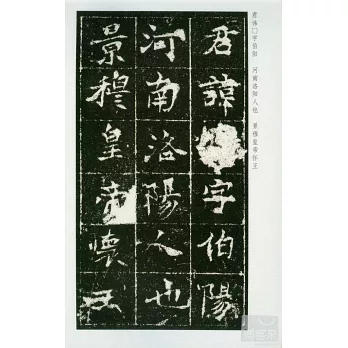 君諱□字伯陽
河南洛陽人也
景穆皇帝懷王
君讳□字伯阳 河南洛阳人也 景穆皇帝怀王